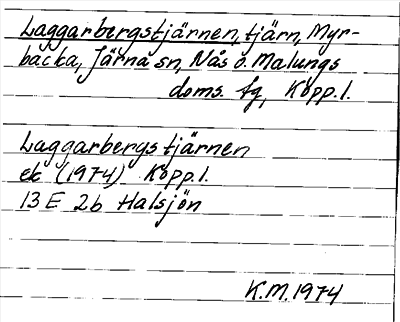 Laggarbergstjärnen, tjärn, Myr-
backa, Järna sn, Nås o. Malungs
doms. fg, Kopp. l.
Laggarbergstjärnen
ek (1974) Kopp. l.
13 E 2b Halsjön
K.M. 1974